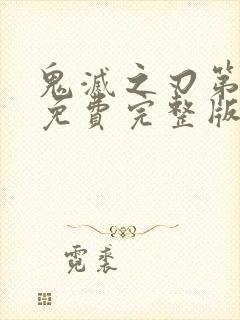 鬼滅之刃第
免費完整版
霓裘